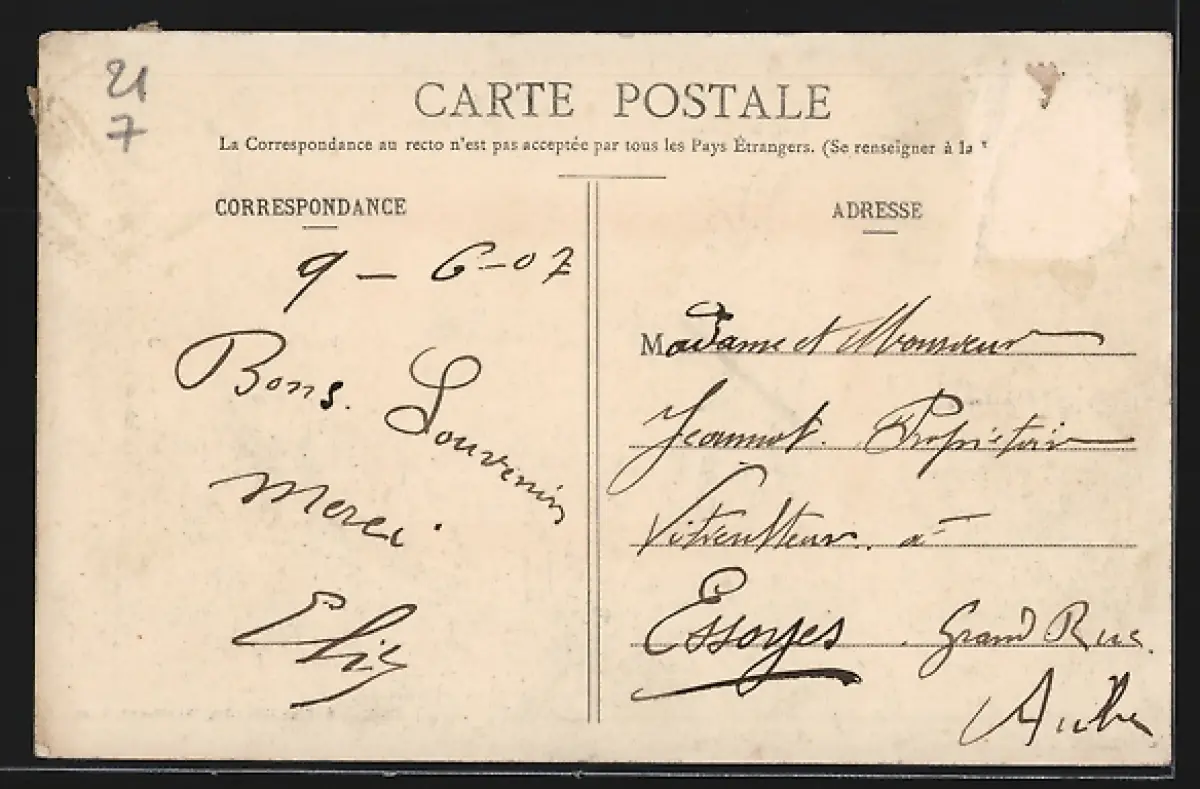 21
7
CARTE POSTALE
La Correspondance au recto n'est pas acceptée par tous les Pays Étrangers. (Se renseigner à la
CORRESPONDANCE
9 - 6 - 07
Bons Souvenirs
Merci
ADRESSE
Madame et Monsieur
Jeannot. Propriétair
Viticulteur. à
Essoyes. Grand Rue.
Aube